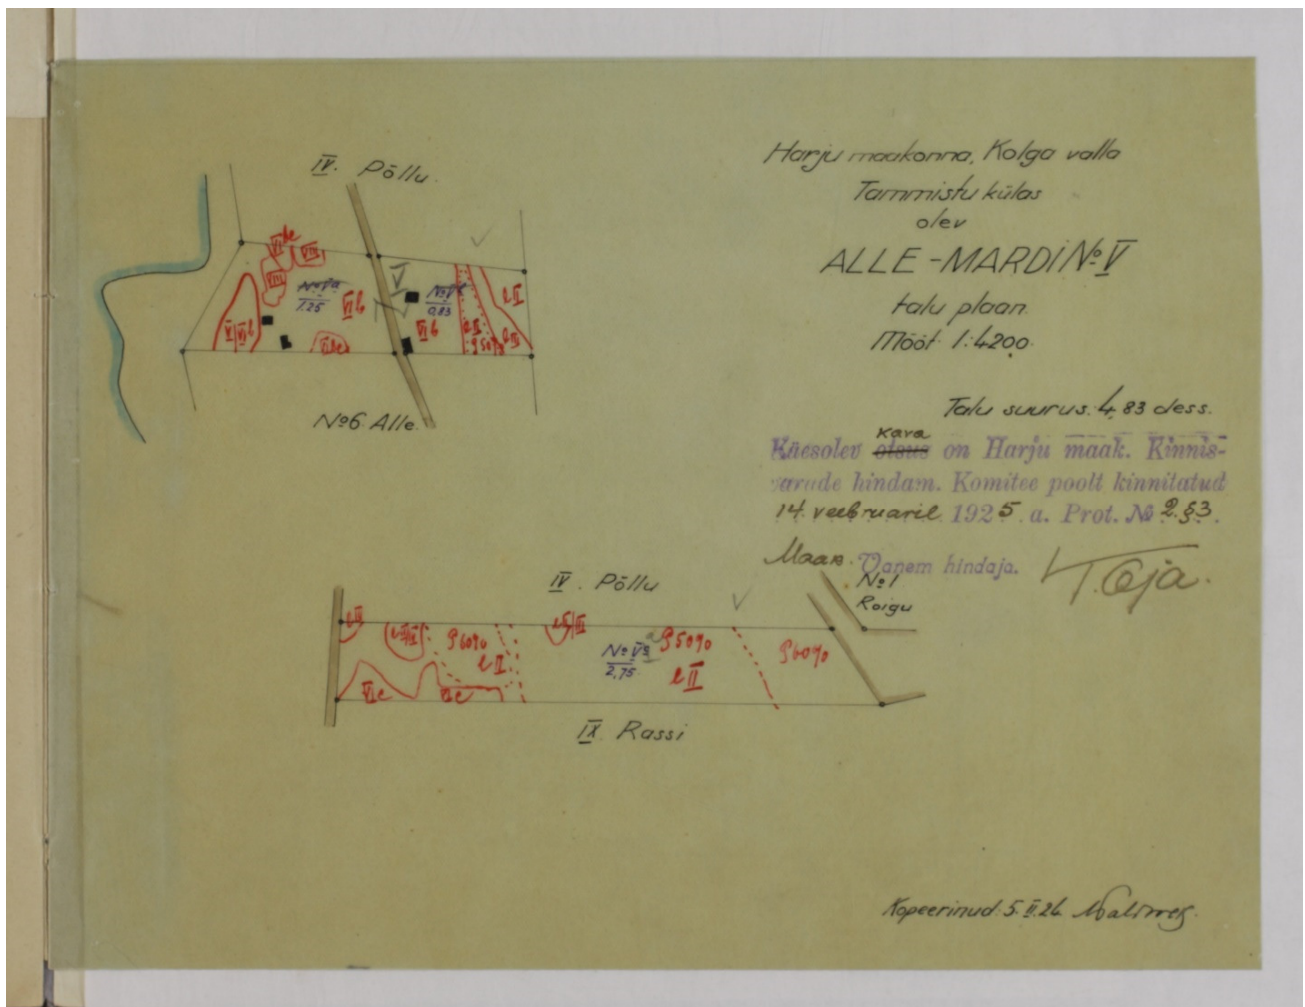 Harju maakonna, Kolga valla
Tammistu külas
olev
ALLE-MARDI № V
talu plaan.
Mõõt 1:4200.
Talu suurus: 4,83 dess.
kava
Käesolev otsus on Harju maak. Kinnis-
varude hindam. Komitee poolt kinnitatud
14. veebruaril 1925 a. Prot. № 2. §3.
Maar. Vanem hindaja.
IV. Põllu.
VIII
VIII
№ Va
1.25
VI b
V
№ V
0,83
VI b
e II
№ 6 Alle.
IV. Põllu
№ 1
Roigu
e II
§ 60%
e II
№ Va
2,75
§ 50%
e II
§ 60%
VI e
VI e
IX. Rassi
Kopeerinud: 5.II.24.